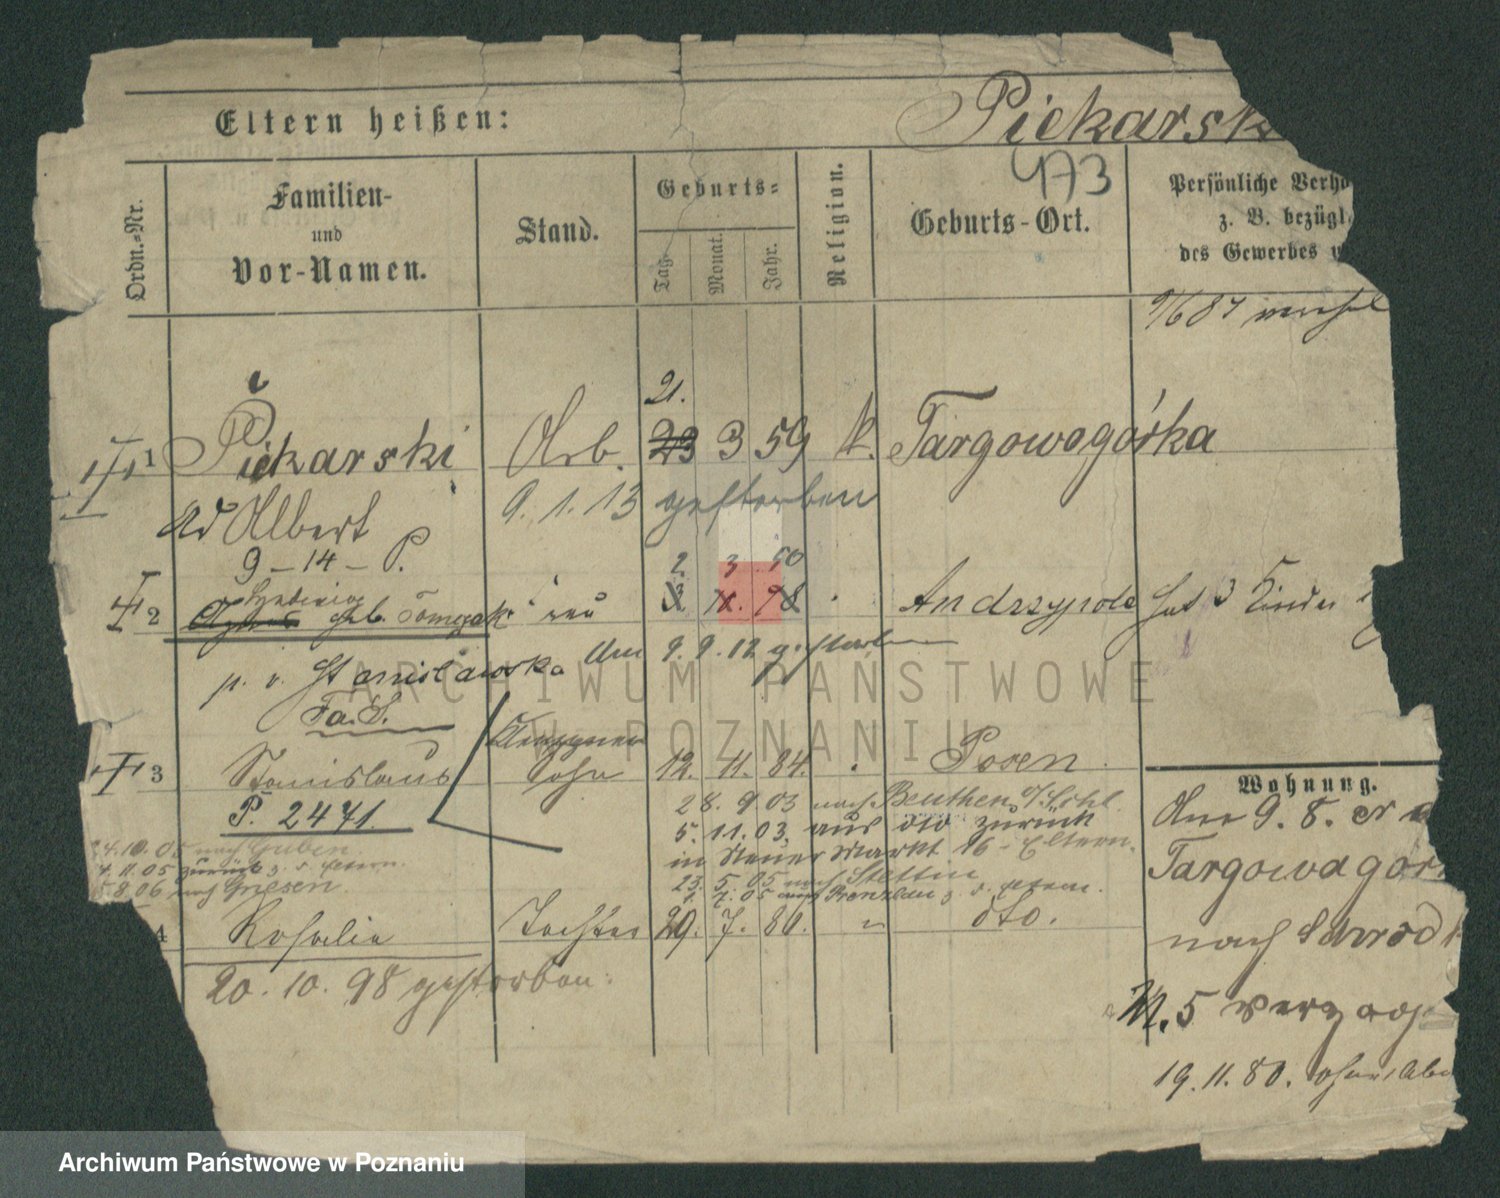 Eltern heißen:
Piekarsk
473
Ordn.-Nr.
Familien-
und
Vor-Namen.
Stand.
Geburts-
Tag
Monat.
Jahr.
Religion.
Geburts-Ort.
Persönliche Verh
z. B. bezügl.
des Gewerbes
9/6 87
21.
1 Piekarski Arb. 23 3 59 k. Targowagórka
Ad Albert 9. 1. 13 gestorben
9 - 14 - P.
2. 3. 50
2 geb. Tomczak Frau Andrzypole hat 3 Kinder
Am 9. 9. 12 gestorben
p. v. Stanislawska
Fa. S.
Klempner
3 Stanislaus Sohn 12. 11. 84. Posen.
P. 2471.
28. 9 03 nach Beuthen O/Schl.
5. 11. 03. aus dto zurück
in Neuer Markt 16 - Eltern.
23. 5. 05 nach Stettin
1. 7. 05 aus Prenzlau z. d. Eltern.
24.10.05 nach Guben
4. 11. 05 zurück z. d. Eltern.
5.8.06 nach Gnesen
4 Rosalie Tochter 29. 7. 86. " dto.
20. 10. 98 gestorben.
Wohnung.
Am 9. 8.
Targowagor
nach
N. 5 verzog
19. 11. 80.
ARCHIWUM PAŃSTWOWE
W POZNANIU
Archiwum Państwowe w Poznaniu